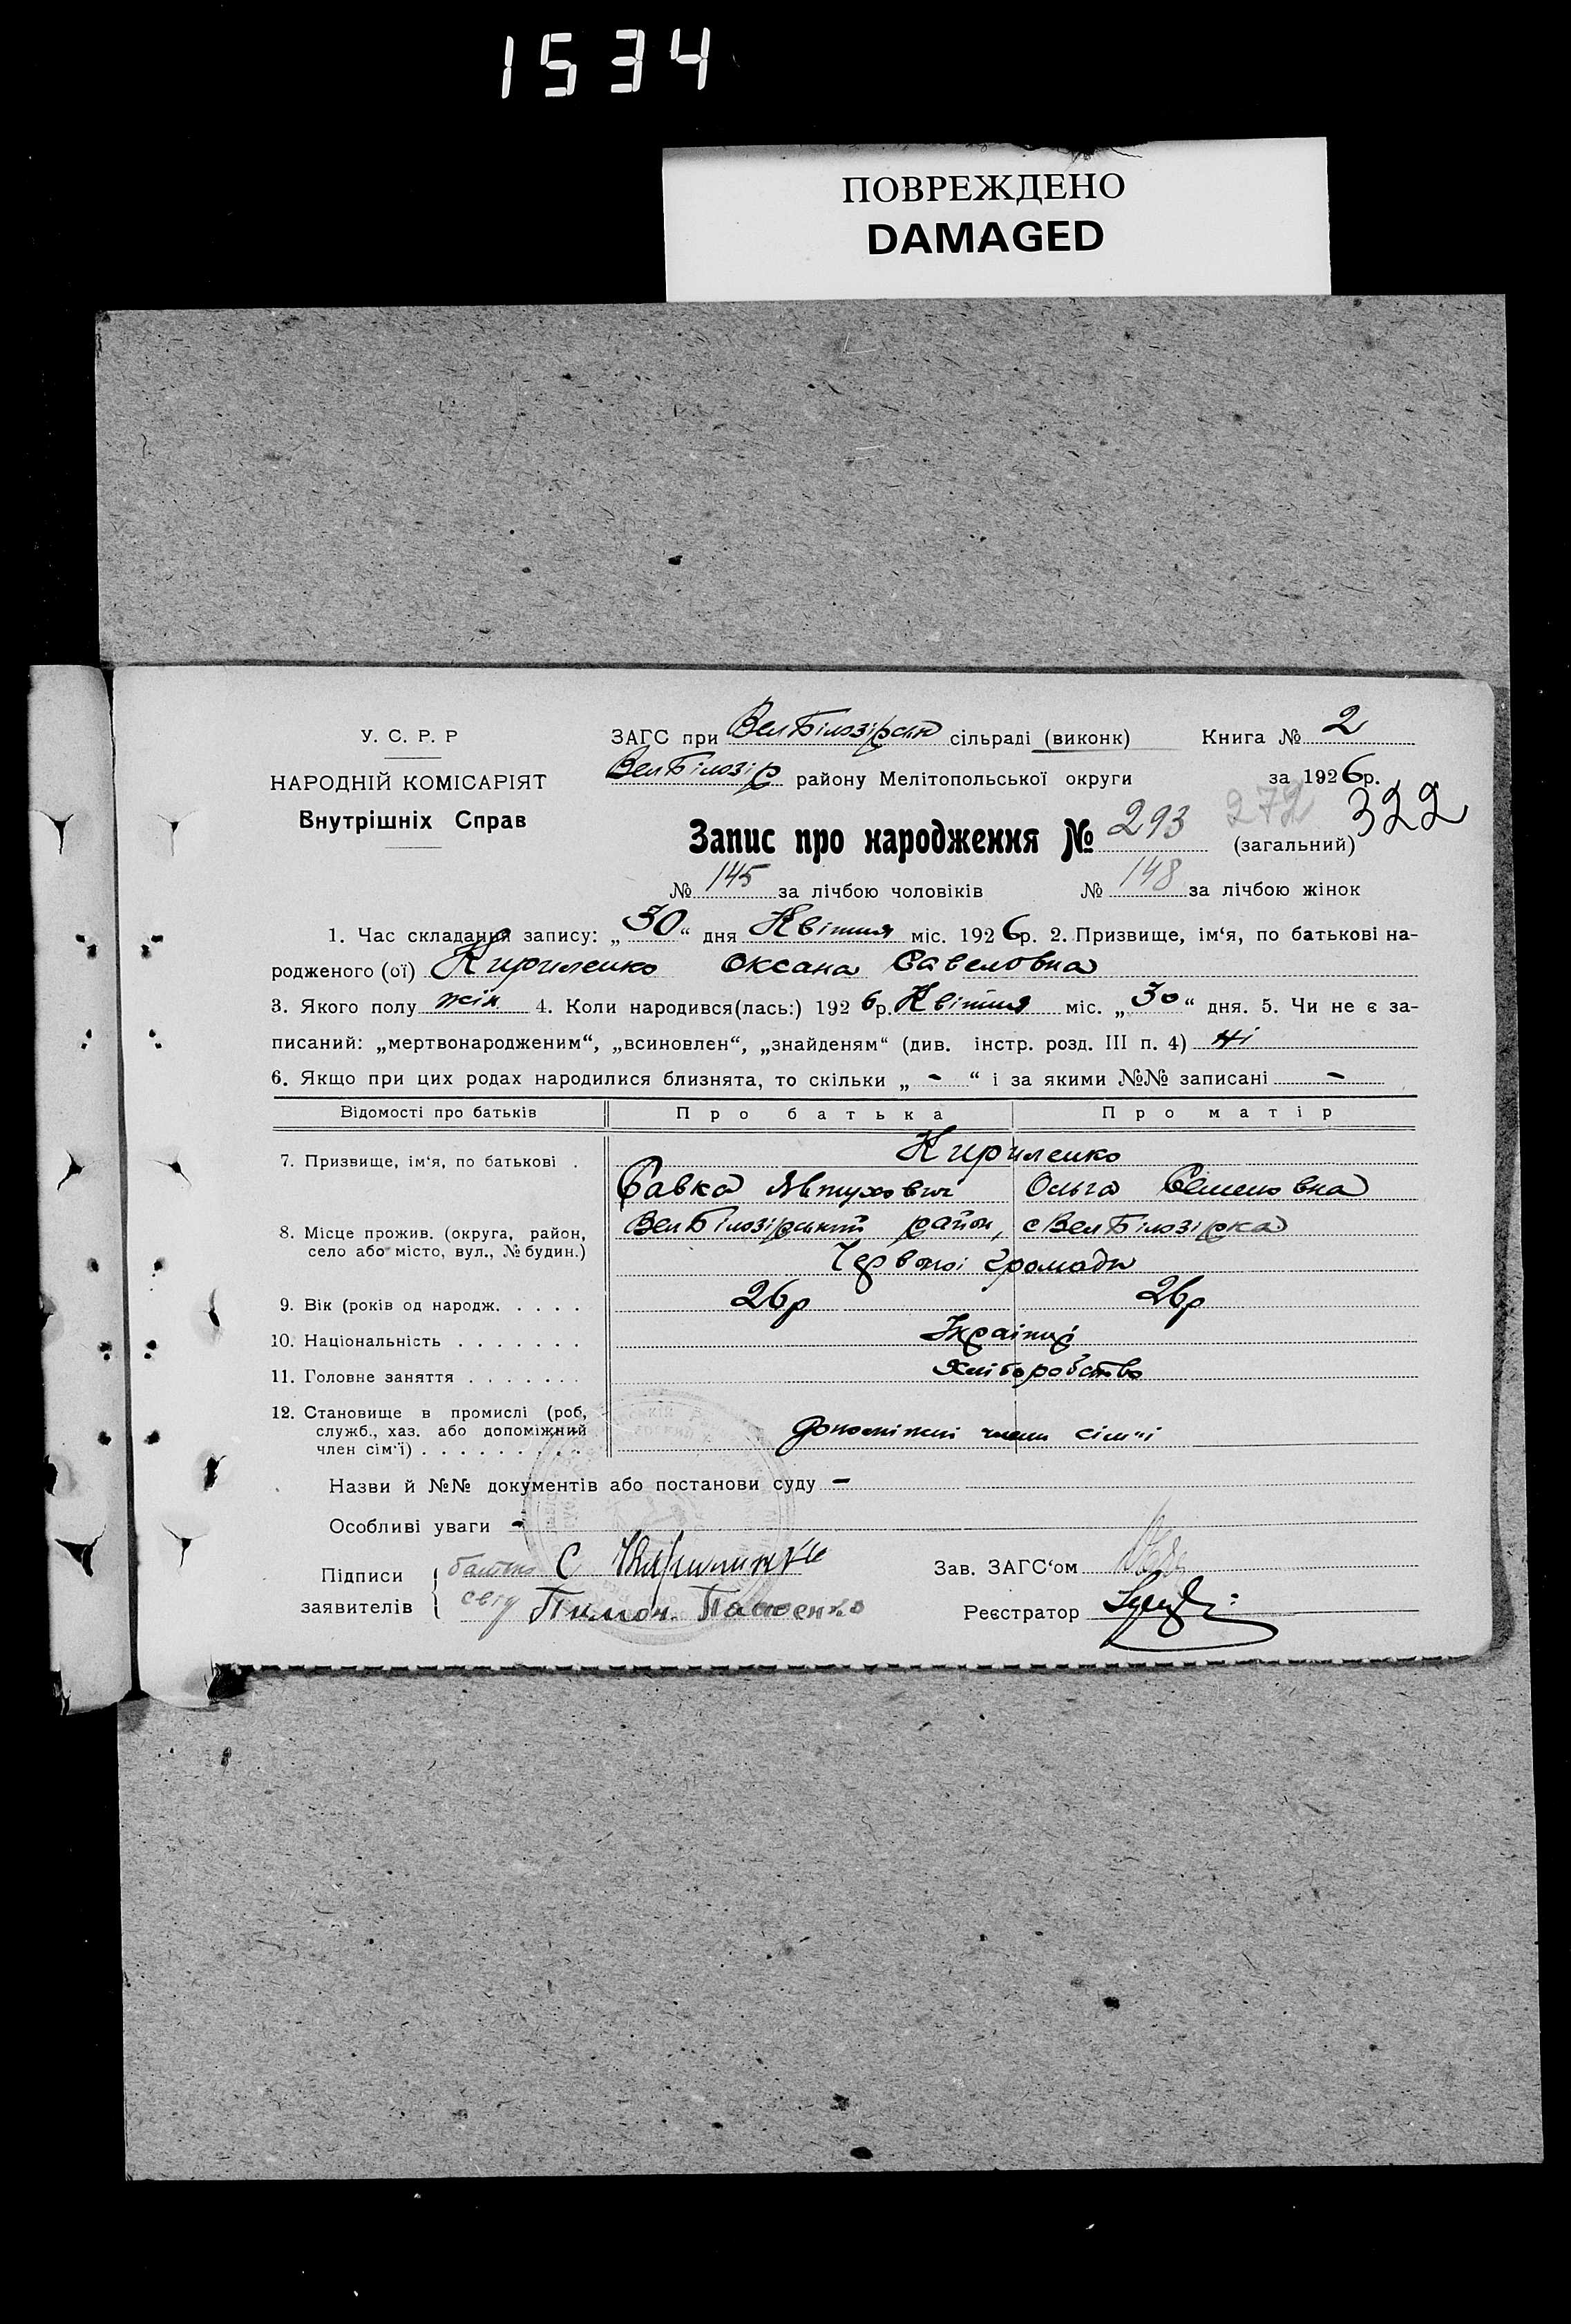 1534
ПОВРЕЖДЕНО
DAMAGED
У. С. Р. Р
НАРОДНІЙ КОМІСАРІЯТ
Внутрішніх Справ
ЗАГС при ВелБілозірськ сільраді (виконк) Книга № 2
ВелБілозір району Мелітопольської округи за 1926р.
Запис про народження № 293 272 322 (загальний)
№ 145 за лічбою чоловіків № 148 за лічбою жінок
1. Час складання запису: „30“ дня Квітня міс. 1926р. 2. Призвище, ім‘я, по батькові на-
родженого (ої) Кириленко Оксана Савеловна
3. Якого полу жін 4. Коли народився(лась:) 1926р. Квітня міс. „30“ дня. 5. Чи не є за-
писаний: „мертвонародженим“, „всиновлен“, „знайденям“ (див. інстр. розд. III п. 4) ні
6. Якщо при цих родах народилися близнята, то скільки „ - “ і за якими №№ записані -
Відомості про батьків Про батька Про матір
7. Призвище, ім‘я, по батькові . Кириленко
Савка Явтухович Ольга Семеновна
8. Місце прожив. (округа, район, село або місто, вул., № будин.) ВелБілозірський район, с ВелБілозірка
Червоної Громади
9. Вік (років од народж. . . . . 26р 26р
10. Національність . . . . . . . Українці
11. Головне заняття . . . . . . . Хліборобство
12. Становище в промислі (роб, служб., хаз. або допоміжний член сім‘ї) . . . . . . . . . допоміжні члени сім'ї
Назви й №№ документів або постанови суду -
Особливі уваги -
Підписи заявителів батько С
свід Пимон Пащенко
Зав. ЗАГС‘ом
Реєстратор